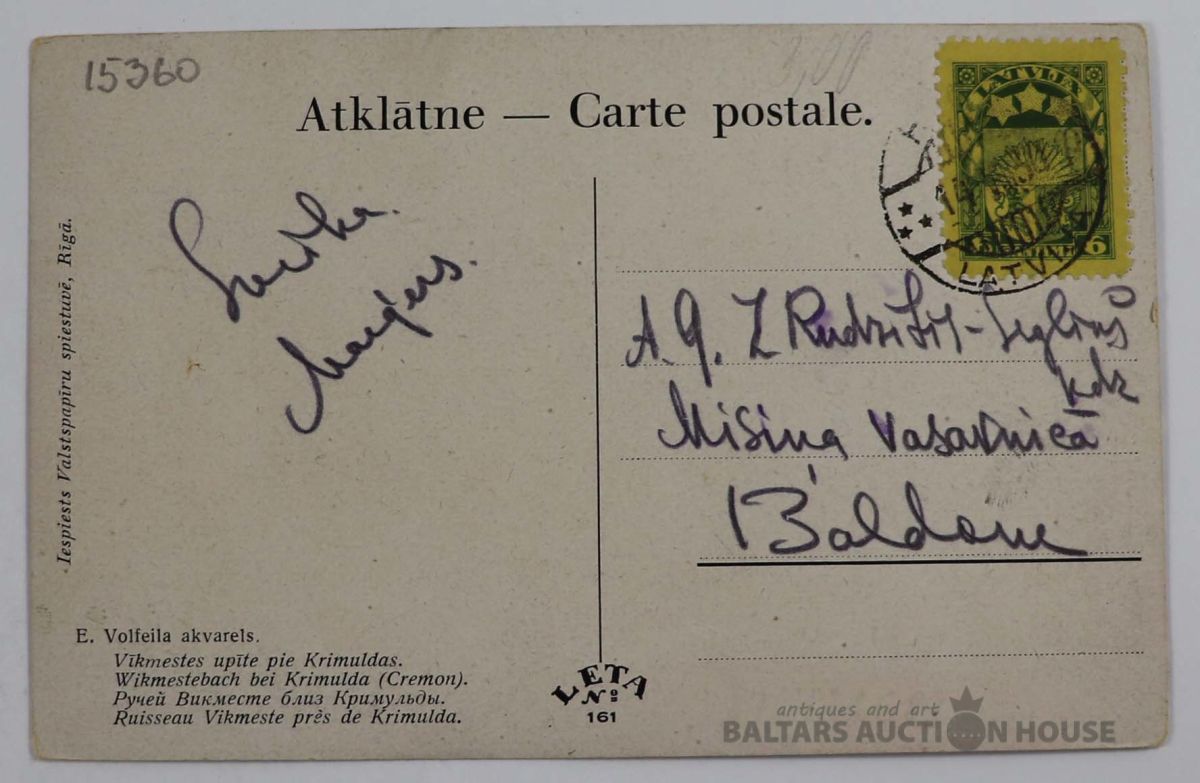 15360
3,00
Atklātne — Carte postale.
LATVIJA
6 6
LATVIJA
Sveika
Marģers.
A. G. Z Rudzītis-Segliņš
kdz
Misiņa vasarnicā
Baldone
Iespiests Valstspapīru spiestuvē, Rīgā.
E. Volfeila akvarels.
Vīkmestes upīte pie Krimuldas.
Wikmestebach bei Krimulda (Cremon).
Ручей Викместе близ Кримульды.
Ruisseau Vikmeste près de Krimulda.
LETA
№
161
antiques and art
BALTARS AUCTION HOUSE